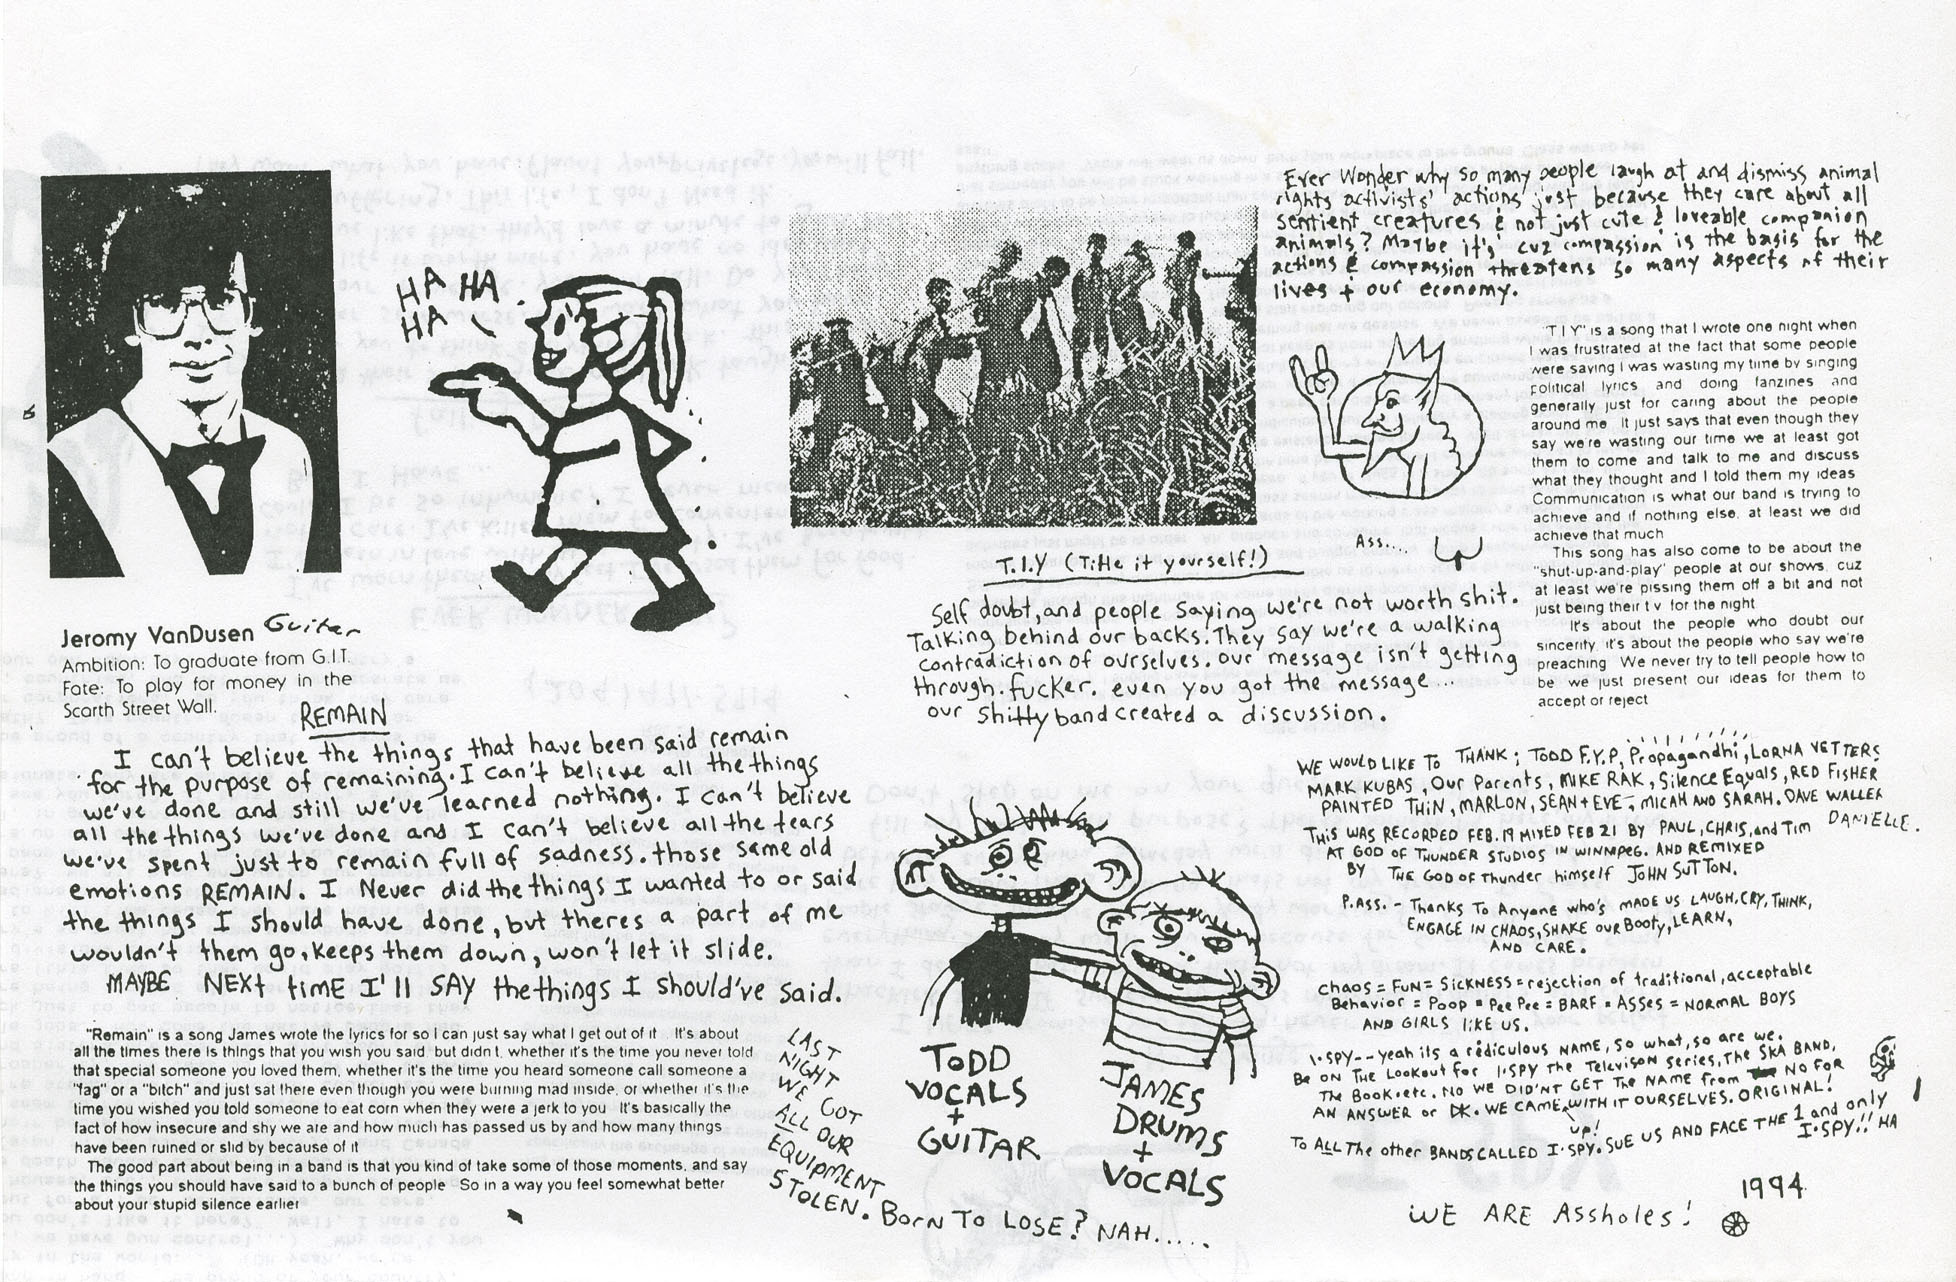 HA HA
HA
Jeromy VanDusen Guitar
Ambition: To graduate from G.I.T.
Fate: To play for money in the
Scarth Street Wall.
REMAIN
I can't believe the things that have been said remain
for the purpose of remaining. I can't believe all the things
we've done and still we've learned nothing. I can't believe
all the things we've done and I can't believe all the tears
we've spent just to remain full of sadness. those same old
emotions REMAIN. I Never did the things I wanted to or said
the things I should have done, but theres a part of me
wouldn't them go, keeps them down, won't let it slide.
MAYBE NEXt time I'll SAY the things I should've said.
"Remain" is a song James wrote the lyrics for so I can just say what I get out of it It's about
all the times there is things that you wish you said, but didn't, whether it's the time you never told
that special someone you loved them, whether it's the time you heard someone call someone a
"fag" or a "bitch" and just sat there even though you were burning mad inside, or whether it's the
time you wished you told someone to eat corn when they were a jerk to you It's basically the
fact of how insecure and shy we are and how much has passed us by and how many things
have been ruined or slid by because of it
The good part about being in a band is that you kind of take some of those moments, and say
the things you should have said to a bunch of people So in a way you feel somewhat better
about your stupid silence earlier
T.I.Y (TiHe it yourself!)
Self doubt, and people Saying we're not worth shit.
Talking behind our backs. They Say we're a walking
contradiction of ourselves. our message isn't getting
through. fucker. even you got the message...
our shitty band created a discussion.
TODD
VOCALS
+
GUITAR
JAMES
DRUMS
+
VOCALS
LAST
NIGHT
WE GOT
ALL OUR
EQUIPMENT
STOLEN. Born To LOSE? NAH.....
Ever Wonder why so many people laugh at and dismiss animal
rights activists' actions just because they care about all
sentient creatures & not just cute & loveable companion
animals? Maybe it's cuz compassion is the basis for the
actions & compassion threatens so many aspects of their
lives + our economy.
Ass...
"T I Y" is a song that I wrote one night when
I was frustrated at the fact that some people
were saying I was wasting my time by singing
political lyrics and doing fanzines and
generally just for caring about the people
around me It just says that even though they
say we're wasting our time we at least got
them to come and talk to me and discuss
what they thought and I told them my ideas
Communication is what our band is trying to
achieve and if nothing else, at least we did
achieve that much
This song has also come to be about the
"shut-up-and-play" people at our shows, cuz
at least we're pissing them off a bit and not
just being their t v for the night
It's about the people who doubt our
sincerity, it's about the people who say we're
preaching We never try to tell people how to
be, we just present our ideas for them to
accept or reject
WE WOULD LIKE TO THANK; TODD F.Y.P, Propagandhi, LORNA VETTERS
MARK KUBAS, Our Parents, MIKE RAK, Silence Equals, RED FISHER
PAINTED THIN, MARLON, SEAN + EVE, MICAH AND SARAH. DAVE WALLER
DANIELLE.
THIS WAS RECORDED FEB.19 MIXED FEB 21 BY PAUL, CHRIS, and Tim
AT GOD OF THUNDER STUDIOS IN WINNPEG. AND REMIXED
BY THE GOD OF Thunder himself JOHN SUTTON.
P.ASS. - Thanks To Anyone who's MADE US LAUGH, CRY, THINK,
ENGAGE IN CHAOS, SHAKE OUR BOOTY, LEARN,
AND CARE.
CHAOS = FUN = SICKNESS = rejection of traditional, acceptable
Behavior = Poop = Pee Pee = BARF = ASSes = NORMAL BOYS
AND GIRLS LIKE US.
I.SPY -- yeah its a rediculous NAME, SO what, SO are we.
Be ON THE LOOKOUT for I.SPY THE TELEVISON SERIES, THE SKA BAND,
THE BOOK.etc. NO WE DID'NT GET THE NAME from NO FOR
AN ANSWER or DK. WE CAME up! WITH IT OURSELVES. ORIGINAL!
TO ALL THe other BANDS CALLED I.SPY. SUE US AND FACE THE 1 and only
I.SPY!! HA
1994
WE ARE Assholes!